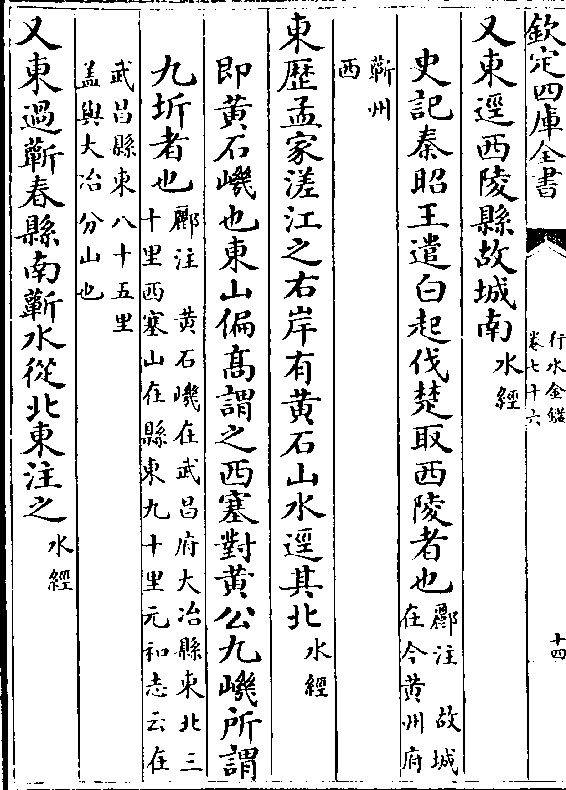 欽定四庫全書
行水金鑑
卷七十六
十四
又東逕西陵縣故城南水經
史記秦昭王遣白起伐楚取西陵者也酈注 故城
在今黄州府
蘄州
西
東歴孟家溠江之右岸有黄石山水逕其北水經
即黄石磯也東山偏高謂之西塞對黄公九磯所謂
九圻者也酈注 黄石磯在武昌府大冶縣東北三
十里西塞山在縣東九十里元和志云在
武昌縣東八十五里
盖與大冶分山也
又東過蘄春縣南蘄水從北東注之水經